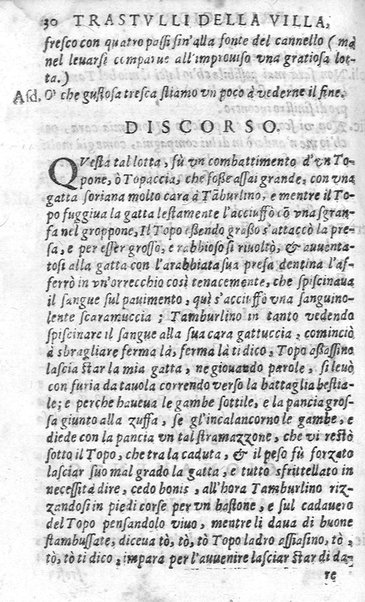 30 TRASTVLLI DELLA VILLA,
fresco con quatro passi sin'alla fonte del cannello (ma
nel leuarsi comparue all'improuiso vna gratiosa lot-
ta.)
Asd. O' che gustosa tresca stiamo vn poco à vederne il fine.
DISCORSO.
QVesta tal lotta, fù vn combattimento d'vn To-
pone, ò Topaccia, che fosse assai grande, con vna
gatta soriana molto cara à Tāburlino, e mentre il To
po fuggiua la gatta lestamente l'acciuffò cō vna sgran-
fa nel groppone, Il Topo essendo grosso s'attaccò la pre
sa, e per esser grosso, e rabbioso si riuoltò, & auuenta-
tosi alla gatta con l'arabbiata sua presa dentina l'af-
ferrò in vn'orrecchio così tenacemente, che spiscinaua
il sangue sul pauimento, quì s'acciuffò vna sanguino-
lente scaramuccia; Tamburlino in tanto vedendo
spiscinare il sangue alla sua cara gattuccia, cominciò
à sbragliare ferma là, ferma là ti dico, Topo assassino
lascia star la mia gatta, ne giouando parole, si leuò
con furia da tauola correndo verso la battaglia bestia-
le; e perche haueua le gambe sottile, e la pancia gros-
sa giunto alla zuffa, se gl'incalancorno le gambe, e
diede con la pancia vn tal stramazzone, che vi restò
sotto il Topo, che tra la caduta, & il peso fù forzato
lasciar suo mal grado la gatta, e tutto sfrittellato in
necessità dire, cedo bonis, all'hora Tamburlino riz-
zandosi in piedi corse per vn bastone, e sul cadauero
del Topo pensandolo viuo, mentre li daua di buone
stambussate, diceua tò, tò, Topo ladro assiasino, tò,
tò, tò ti dico, impara per l'auuenire lasciar star di da-
re